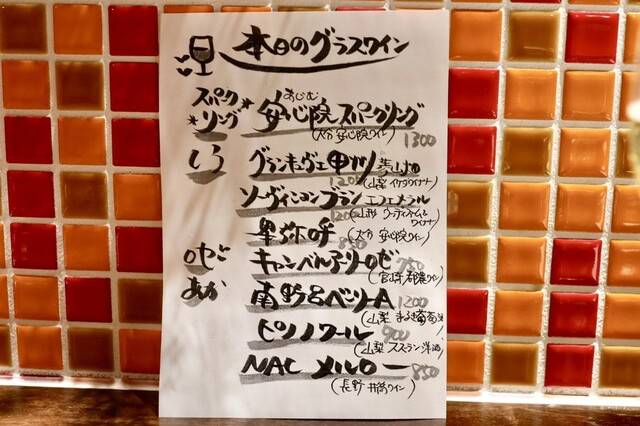 本日のグラスワイン
スパークリング
あじむ
安心院スパークリング
(大分 安心院ワイン)
1300
しろ
グランキュヴェ甲州
1200
(山梨 イケダワイナリー)
ソーヴィニヨンブラン エフェメラル
1200
(山形 ウッディファーム&ワイナリー)
卑弥呼
850
(大分 安心院ワイン)
ロゼ
キャンベルアーリーロゼ
750
(宮崎 都農ワイン)
あか
南野呂ベリーA
1200
(山梨 まるき葡萄酒)
ピノノワール
900
(山梨 スズラン洋酒)
NAC メルロー
850
(長野 井筒ワイン)